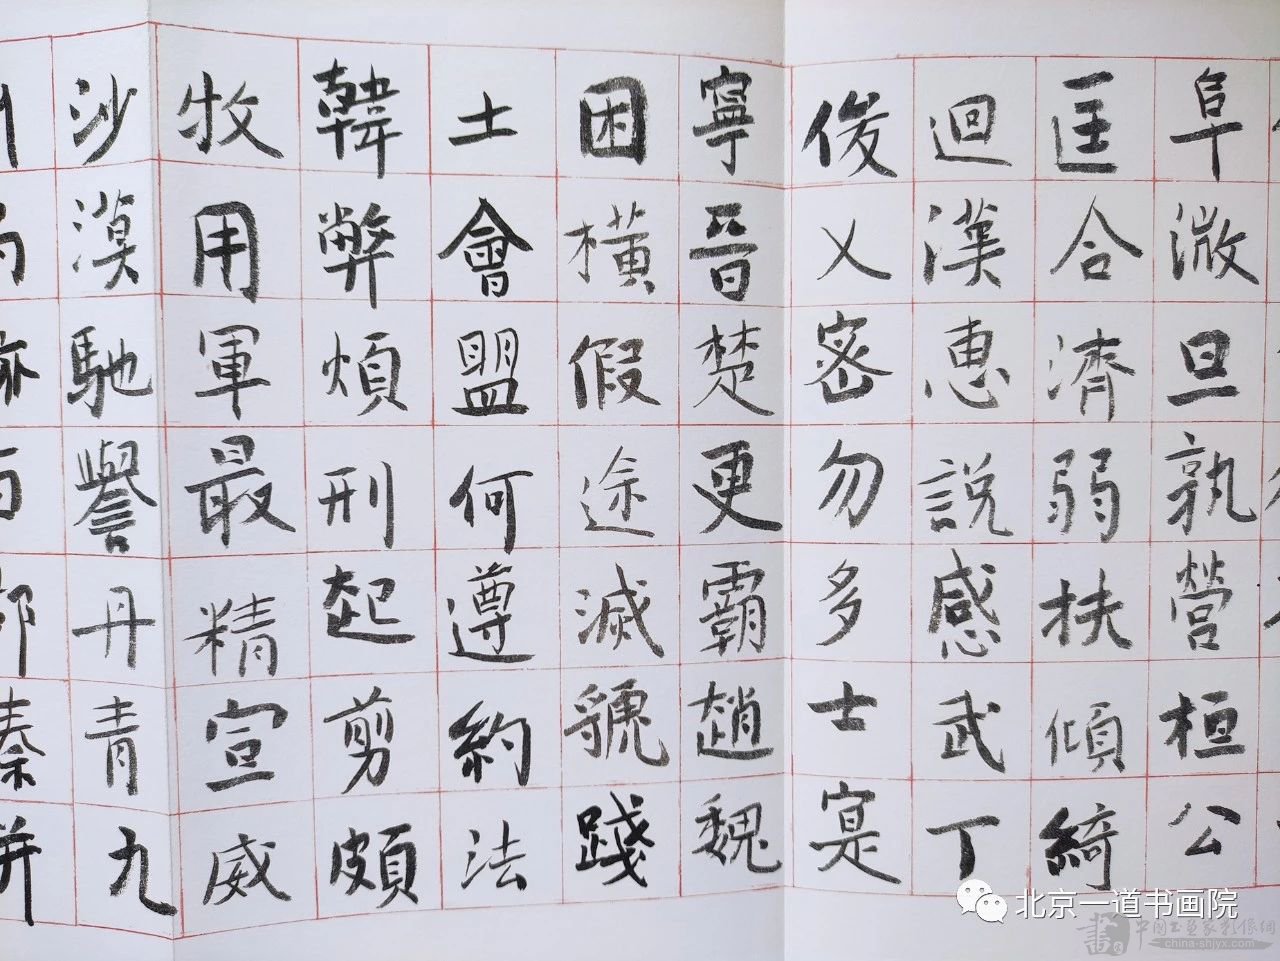 阜微旦孰營桓公
匡合濟弱扶傾綺
迴漢惠說感武丁
俊乂密勿多士寔
寧晉楚更霸趙魏
困橫假途滅虢踐
土會盟何遵約法
韓弊煩刑起剪頗
牧用軍最精宣威
沙漠馳譽丹青九
北京一道书画院
中国书画家影像網
china-shjyx.com